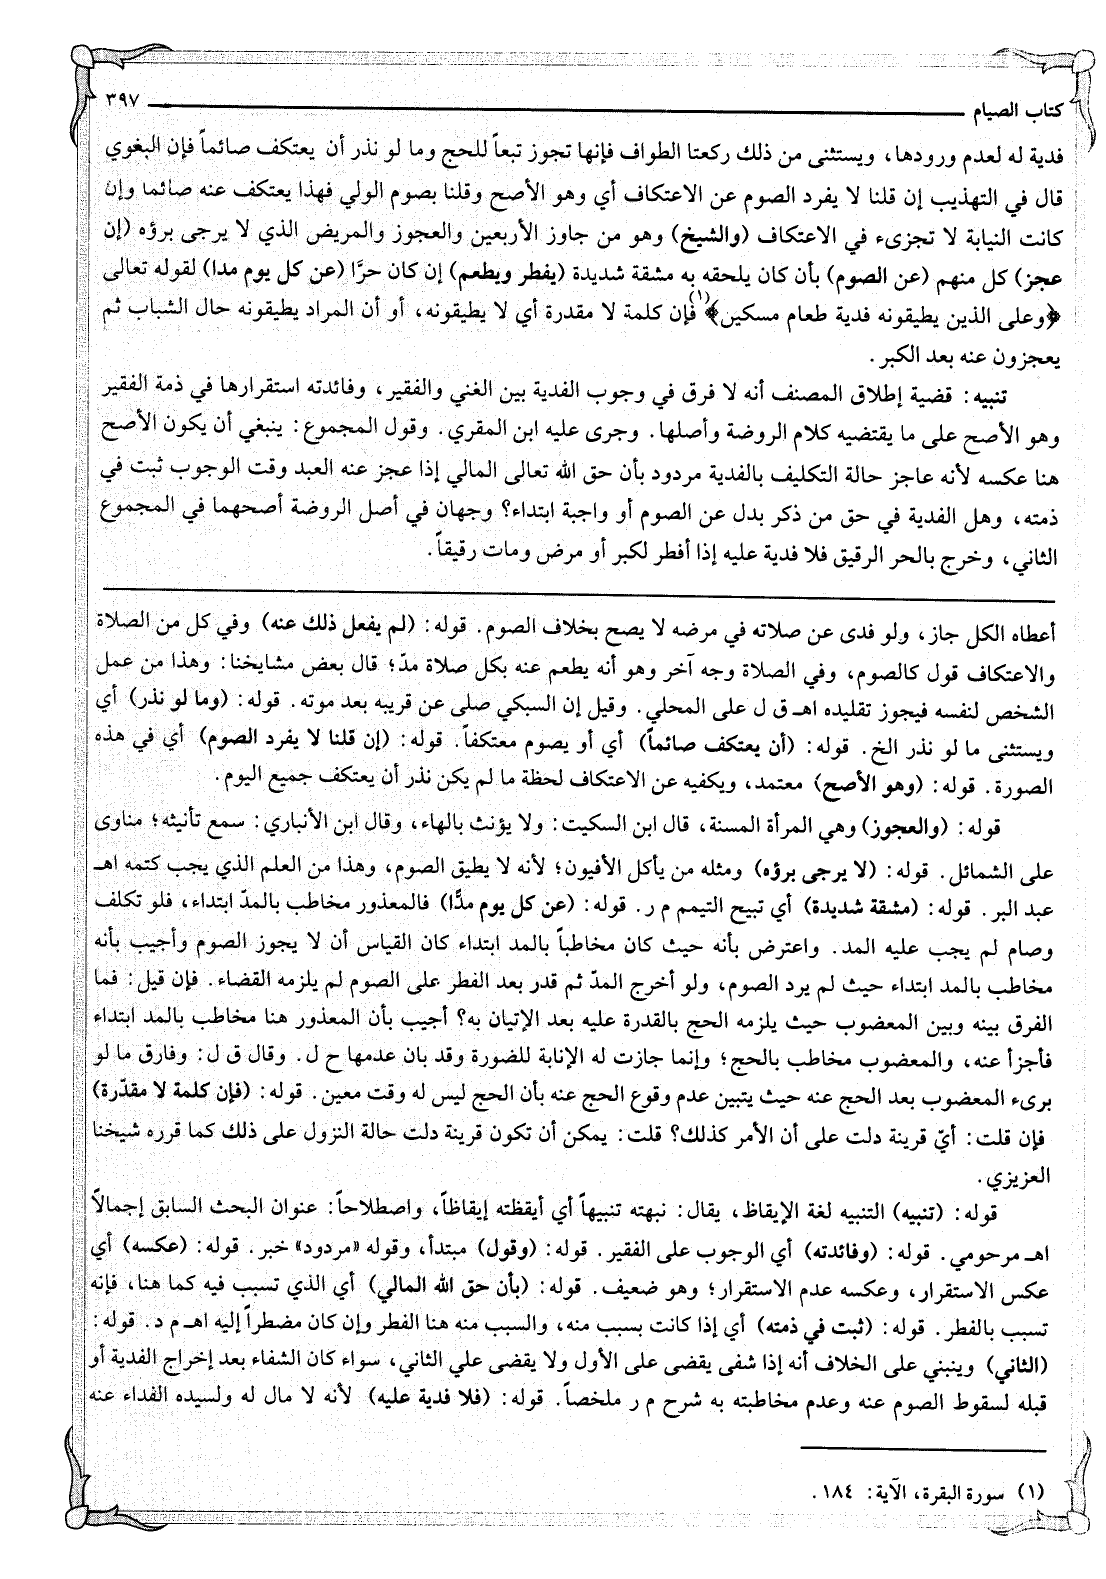 كتاب الصيام ٣٩٧
فدية له لعدم ورودها، ويستثنى من ذلك ركعتا الطواف فإنها تجوز تبعاً للحج وما لو نذر أن يعتكف صائماً فإن البغوي
قال في التهذيب إن قلنا لا يفرد الصوم عن الاعتكاف أي وهو الأصح وقلنا بصوم الولي فهذا يعتكف عنه صائما وإن
كانت النيابة لا تجزىء في الاعتكاف (والشيخ) وهو من جاوز الأربعين والعجوز والمريض الذي لا يرجى برؤه (إن
عجز) كل منهم (عن الصوم) بأن كان يلحقه به مشقة شديدة (يفطر ويطعم) إن كان حرًّا (عن كل يوم مدا) لقوله تعالى
﴿وعلى الذين يطيقونه فدية طعام مسكين﴾(١) فإن كلمة لا مقدرة أي لا يطيقونه، أو أن المراد يطيقونه حال الشباب ثم
يعجزون عنه بعد الكبر.
تنبيه: قضية إطلاق المصنف أنه لا فرق في وجوب الفدية بين الغني والفقير، وفائدته استقرارها في ذمة الفقير
وهو الأصح على ما يقتضيه كلام الروضة وأصلها. وجرى عليه ابن المقري. وقول المجموع: ينبغي أن يكون الأصح
هنا عكسه لأنه عاجز حالة التكليف بالفدية مردود بأن حق الله تعالى المالي إذا عجز عنه العبد وقت الوجوب ثبت في
ذمته، وهل الفدية في حق من ذكر بدل عن الصوم أو واجبة ابتداء؟ وجهان في أصل الروضة أصحهما في المجموع
الثاني، وخرج بالحر الرقيق فلا فدية عليه إذا أفطر لكبر أو مرض ومات رقيقاً.
أعطاه الكل جاز، ولو فدى عن صلاته في مرضه لا يصح بخلاف الصوم. قوله: (لم يفعل ذلك عنه) وفي كل من الصلاة
والاعتكاف قول كالصوم، وفي الصلاة وجه آخر وهو أنه يطعم عنه بكل صلاة مدّ؛ قال بعض مشايخنا: وهذا من عمل
الشخص لنفسه فيجوز تقليده اهـ ق ل على المحلي. وقيل إن السبكي صلى عن قريبه بعد موته. قوله: (وما لو نذر) أي
ويستثنى ما لو نذر الخ. قوله: (أن يعتكف صائماً) أي أو يصوم معتكفاً. قوله: (إن قلنا لا يفرد الصوم) أي في هذه
الصورة. قوله: (وهو الأصح) معتمد، ويكفيه عن الاعتكاف لحظة ما لم يكن نذر أن يعتكف جميع اليوم.
قوله: (والعجوز) وهي المرأة المسنة، قال ابن السكيت: ولا يؤنث بالهاء، وقال ابن الأنباري: سمع تأنيثه؛ مناوى
على الشمائل. قوله: (لا يرجى برؤه) ومثله من يأكل الأفيون؛ لأنه لا يطيق الصوم، وهذا من العلم الذي يجب كتمه اهـ
عبد البر. قوله: (مشقة شديدة) أي تبيح التيمم م ر. قوله: (عن كل يوم مدًّا) فالمعذور مخاطب بالمدّ ابتداء، فلو تكلف
وصام لم يجب عليه المد. واعترض بأنه حيث كان مخاطباً بالمد ابتداء كان القياس أن لا يجوز الصوم وأجيب بأنه
مخاطب بالمد ابتداء حيث لم يرد الصوم، ولو أخرج المدّ ثم قدر بعد الفطر على الصوم لم يلزمه القضاء. فإن قيل: فما
الفرق بينه وبين المعضوب حيث يلزمه الحج بالقدرة عليه بعد الإتيان به؟ أجيب بأن المعذور هنا مخاطب بالمد ابتداء
فأجزأ عنه، والمعضوب مخاطب بالحج؛ وإنما جازت له الإنابة للضورة وقد بان عدمها ح ل. وقال ق ل: وفارق ما لو
برىء المعضوب بعد الحج عنه حيث يتبين عدم وقوع الحج عنه بأن الحج ليس له وقت معين. قوله: (فإن كلمة لا مقدّرة)
فإن قلت: أيّ قرينة دلت على أن الأمر كذلك؟ قلت: يمكن أن تكون قرينة دلت حالة النزول على ذلك كما قرره شيخنا
العزيزي.
قوله: (تنبيه) التنبيه لغة الإيقاظ، يقال: نبهته تنبيهاً أي أيقظته إيقاظاً، واصطلاحاً: عنوان البحث السابق إجمالاً
اهـ مرحومي. قوله: (وفائدته) أي الوجوب على الفقير. قوله: (وقول) مبتدأ، وقوله «مردود» خبر. قوله: (عكسه) أي
عكس الاستقرار، وعكسه عدم الاستقرار؛ وهو ضعيف. قوله: (بأن حق الله المالي) أي الذي تسبب فيه كما هنا، فإنه
تسبب بالفطر. قوله: (ثبت في ذمته) أي إذا كانت بسبب منه، والسبب منه هنا الفطر وإن كان مضطراً إليه اهـ م د. قوله:
(الثاني) وينبني على الخلاف أنه إذا شفى يقضى على الأول ولا يقضى علي الثاني، سواء كان الشفاء بعد إخراج الفدية أو
قبله لسقوط الصوم عنه وعدم مخاطبته به شرح م ر ملخصاً. قوله: (فلا فدية عليه) لأنه لا مال له ولسيده الفداء عنه
(١) سورة البقرة، الآية: ١٨٤.